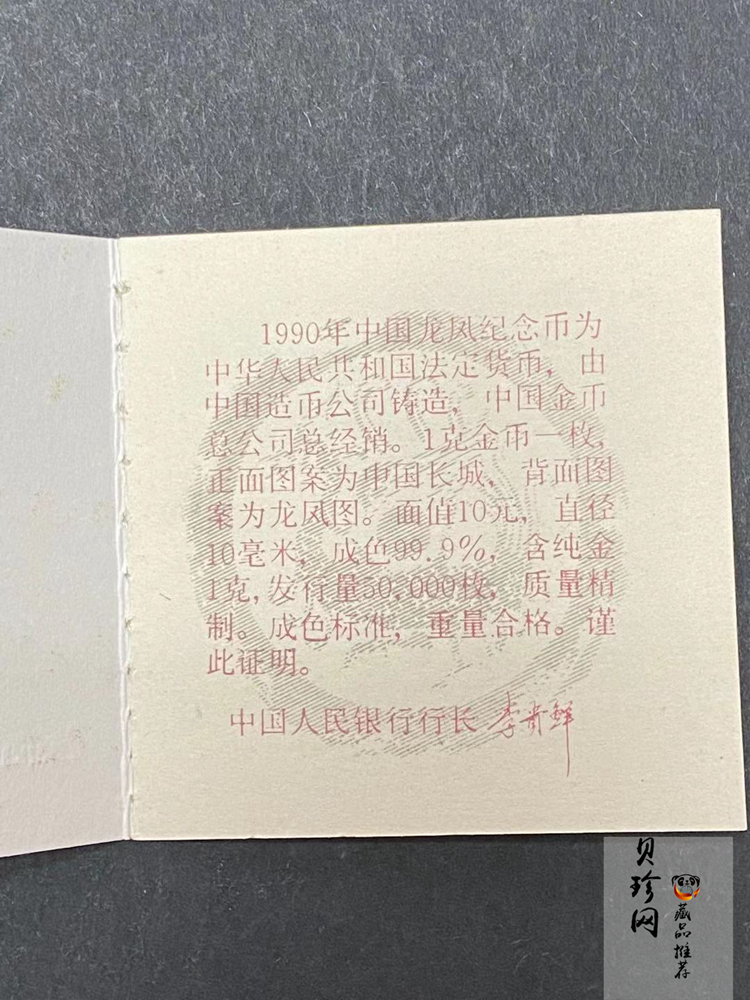 1990年中国龙凤纪念币为
中华人民共和国法定货币，由
中国造币公司铸造，中国金币
总公司总经销。1克金币一枚，
正面图案为中国长城，背面图
案为龙凤图。面值10元，直径
10毫米，成色99.9%，含纯金
1克，发行量50,000枚，质量精
制。成色标准，重量合格。谨
此证明。
中国人民银行行长 李贵鲜
贝珍网
藏品推荐